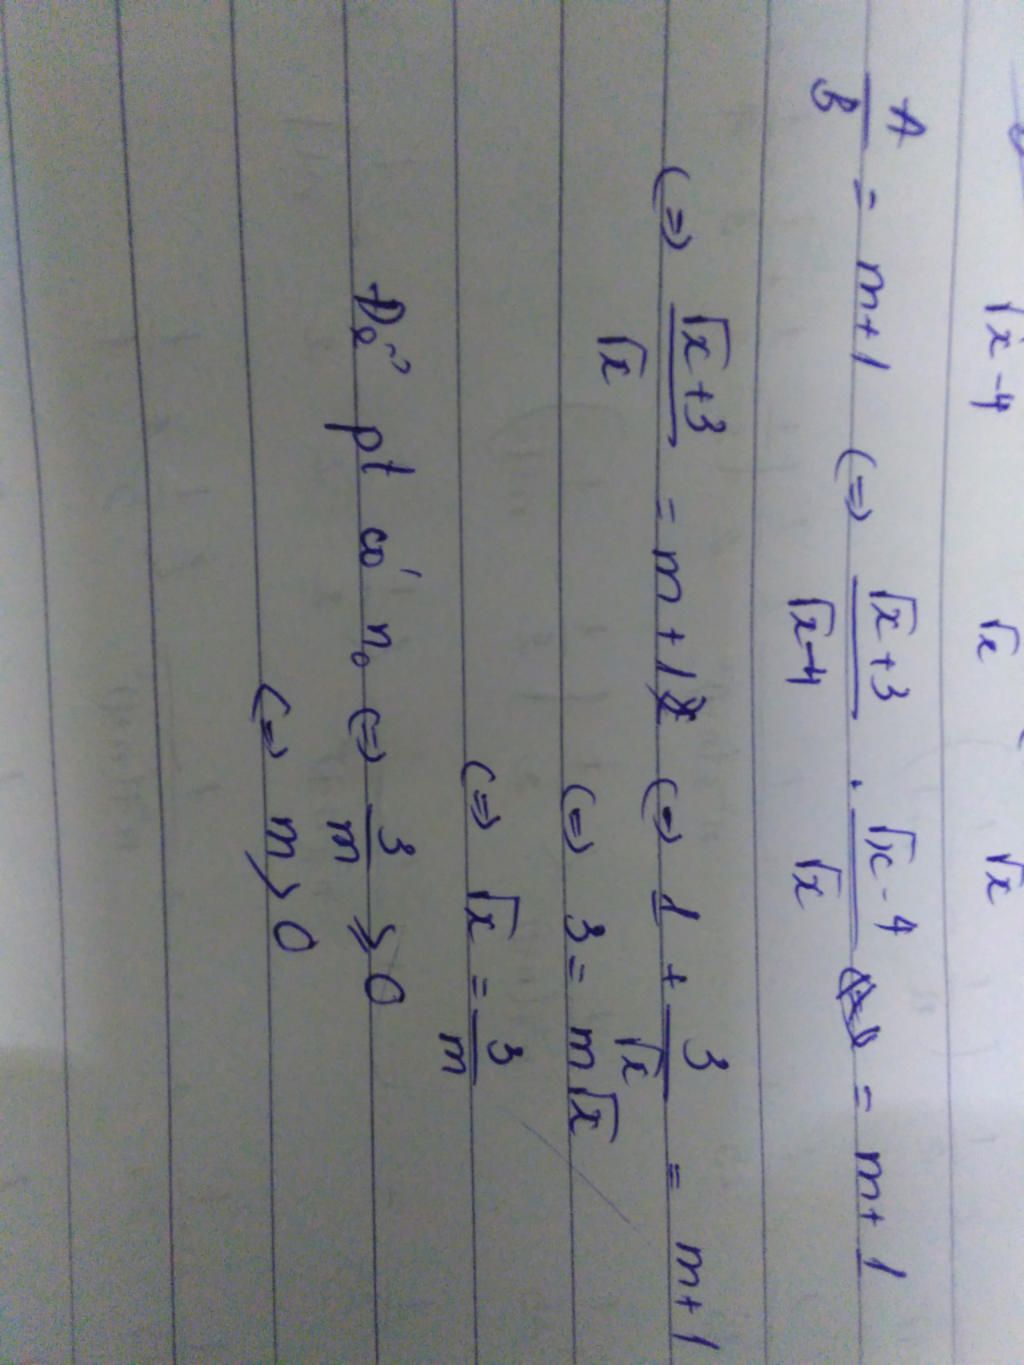 √x-4 √x √x
A/B = m+1 (=) √x+3/√x-4 . √x-4/√x = m+1
(=) √x+3/√x = m+1 (=) 1 + 3/√x = m+1
(=) 3 = m√x
(=) √x = 3/m
Để pt có no (=) 3/m ≥ 0
(=) m > 0